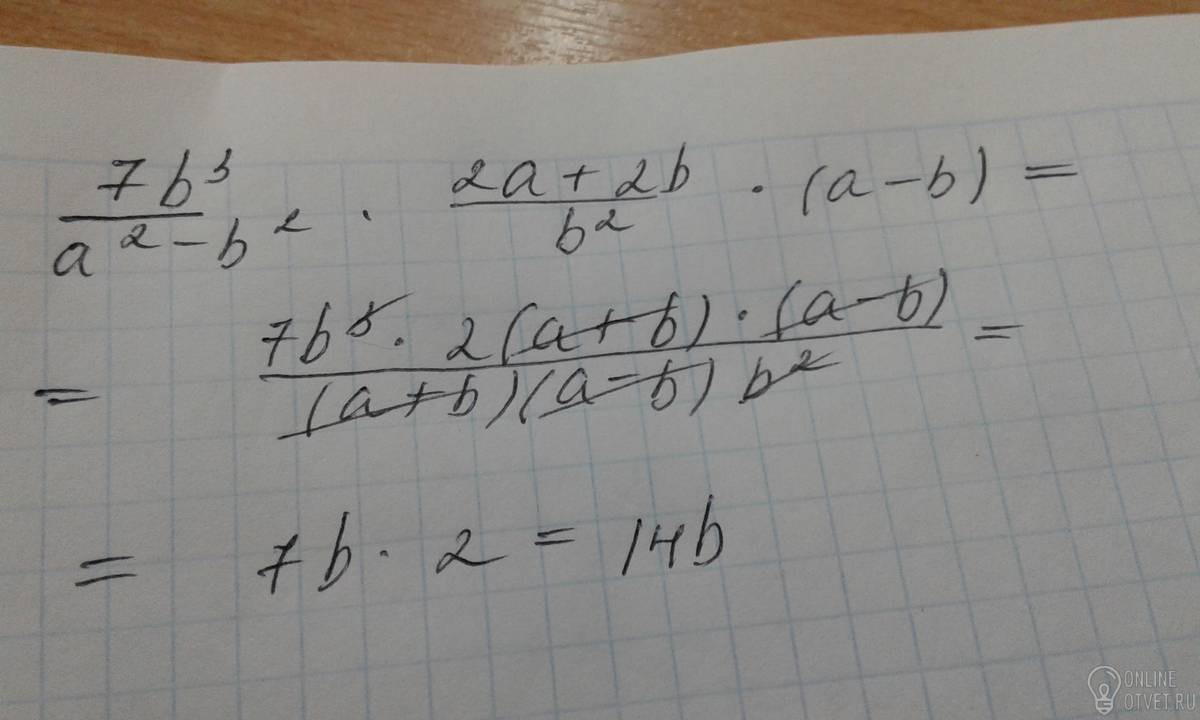 7b³/(a² - b²) · (2a + 2b)/b² · (a - b) =
= (7b³ · 2(a + b) · (a - b))/((a + b)(a - b) b²) =
= 7b · 2 = 14b
ONLINE
OTVET.RU